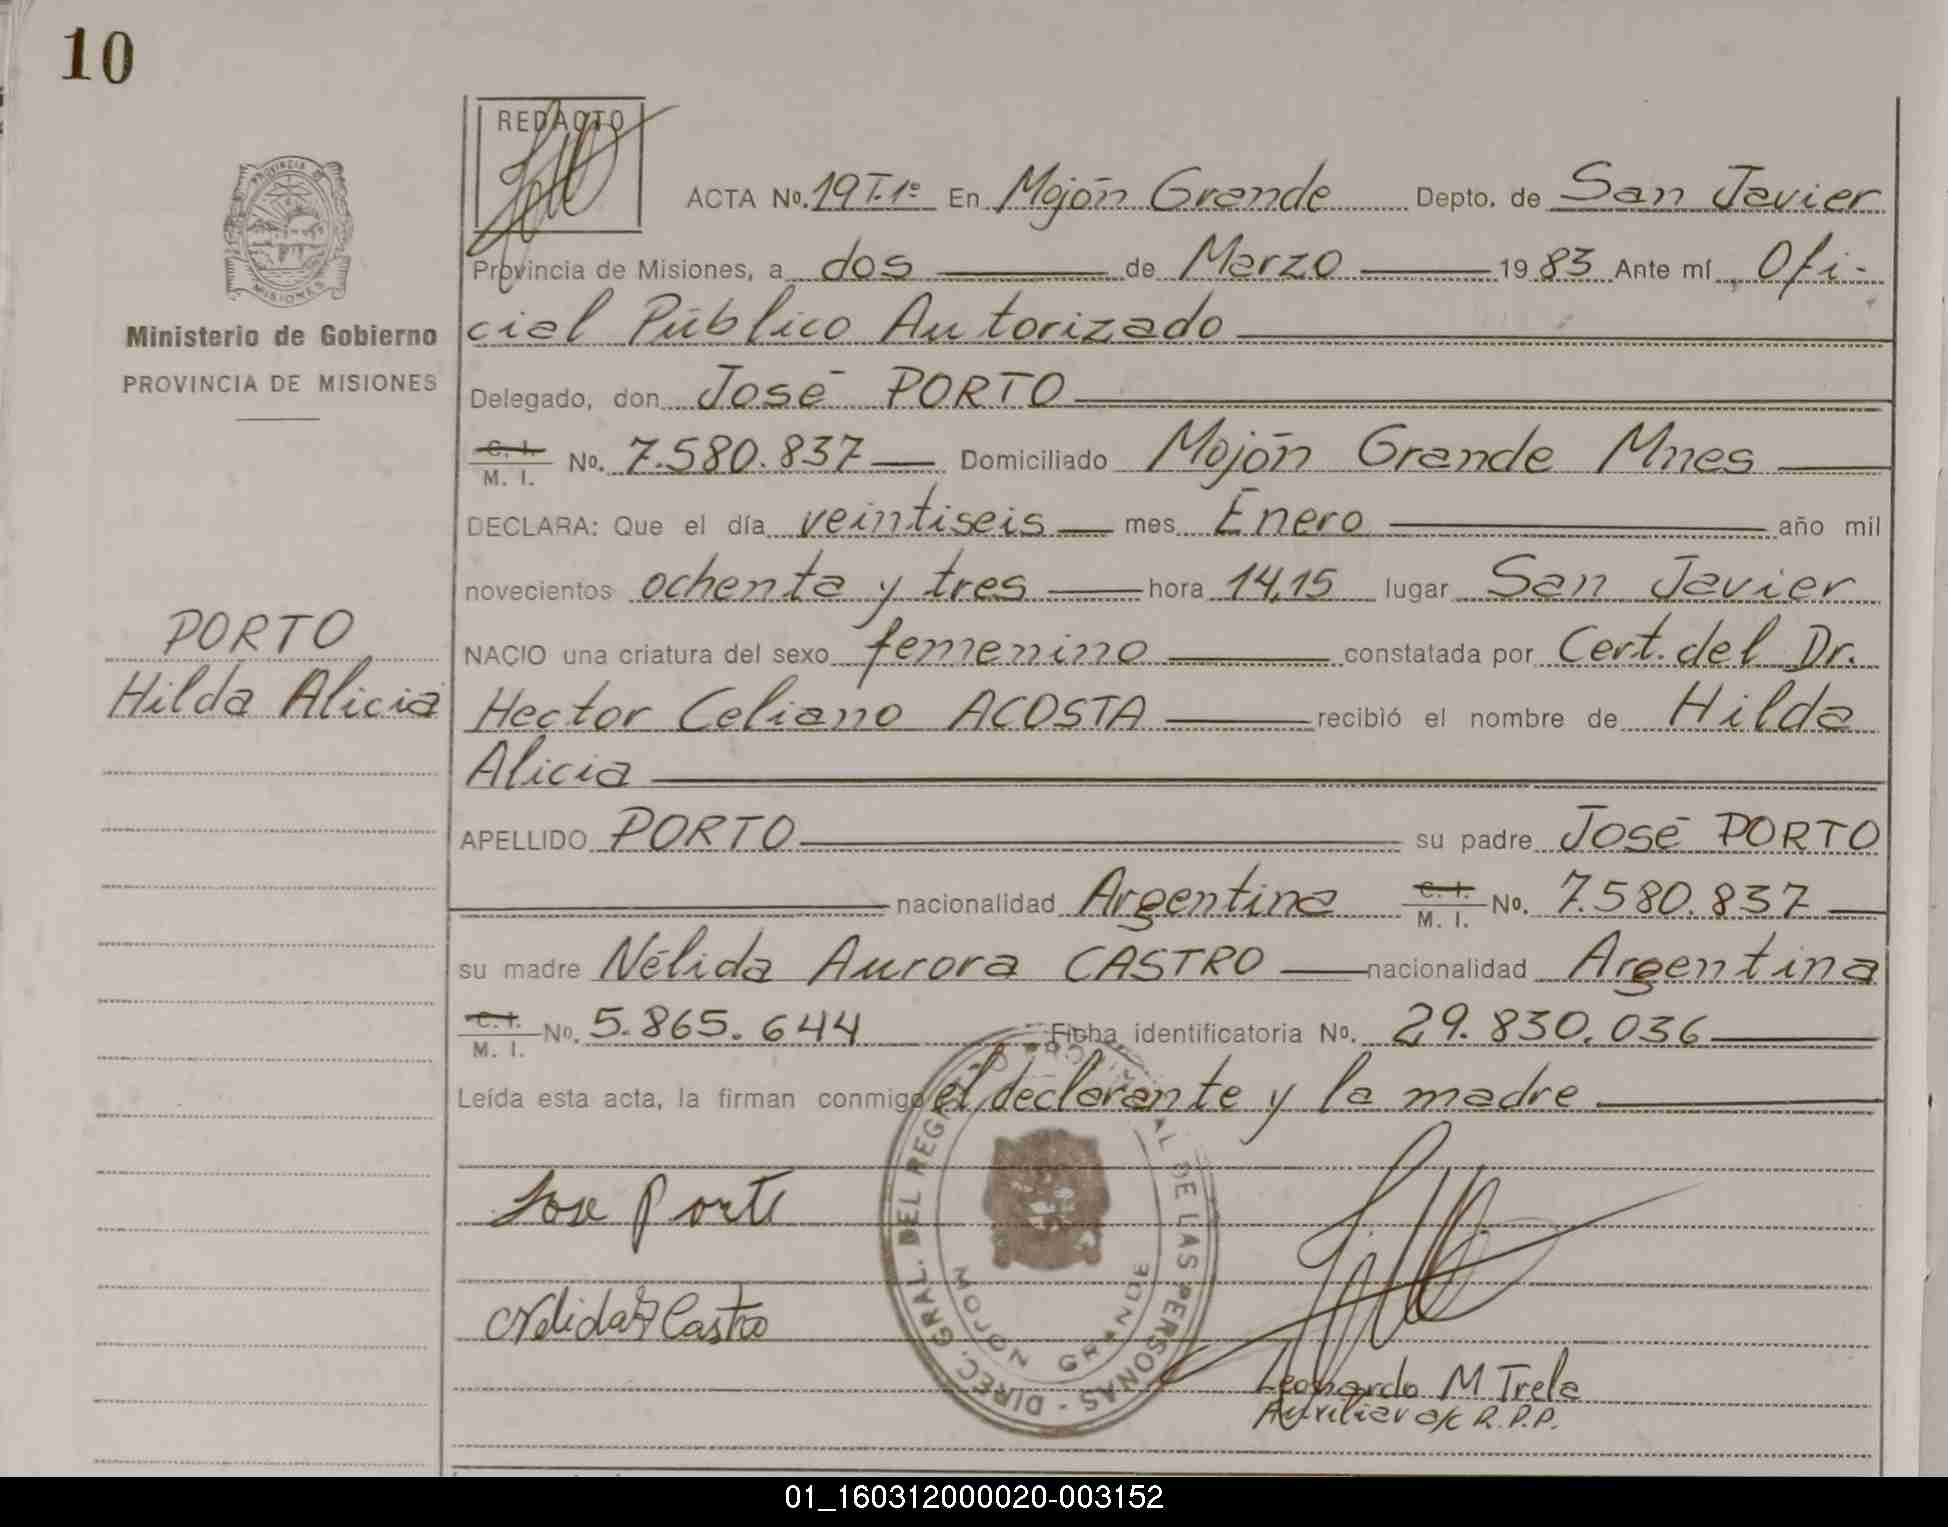 10
REDACTO
PROVINCIA DE
MISIONES
Ministerio de Gobierno
PROVINCIA DE MISIONES
PORTO
Hilda Alicia
ACTA No. 19 T.1º En Mojón Grande Depto. de San Javier
Provincia de Misiones, a dos de Marzo 1983 Ante mí Ofi-
cial Público Autorizado
Delegado, don José PORTO
C. I. M. I. No. 7.580.837 Domiciliado Mojón Grande Mnes
DECLARA: Que el día veintiseis mes Enero año mil
novecientos ochenta y tres hora 14,15 lugar San Javier
NACIO una criatura del sexo femenino constatada por Cert. del Dr.
Hector Celiano ACOSTA recibió el nombre de Hilda
Alicia
APELLIDO PORTO su padre José PORTO
nacionalidad Argentina C. I. M. I. No. 7.580.837
su madre Nélida Aurora CASTRO nacionalidad Argentina
C. I. M. I. No. 5.865.644 Ficha identificatoria No. 29.830.036
Leída esta acta, la firman conmigo el declarante y la madre
Jose Porto
Nelida A Castro
DIREC. GRAL. DEL REG. PROVINCIAL DE LAS PERSONAS -
MOJON GRANDE
Leonardo M Trela
Auxiliar a/c R.P.P.
01_160312000020-003152